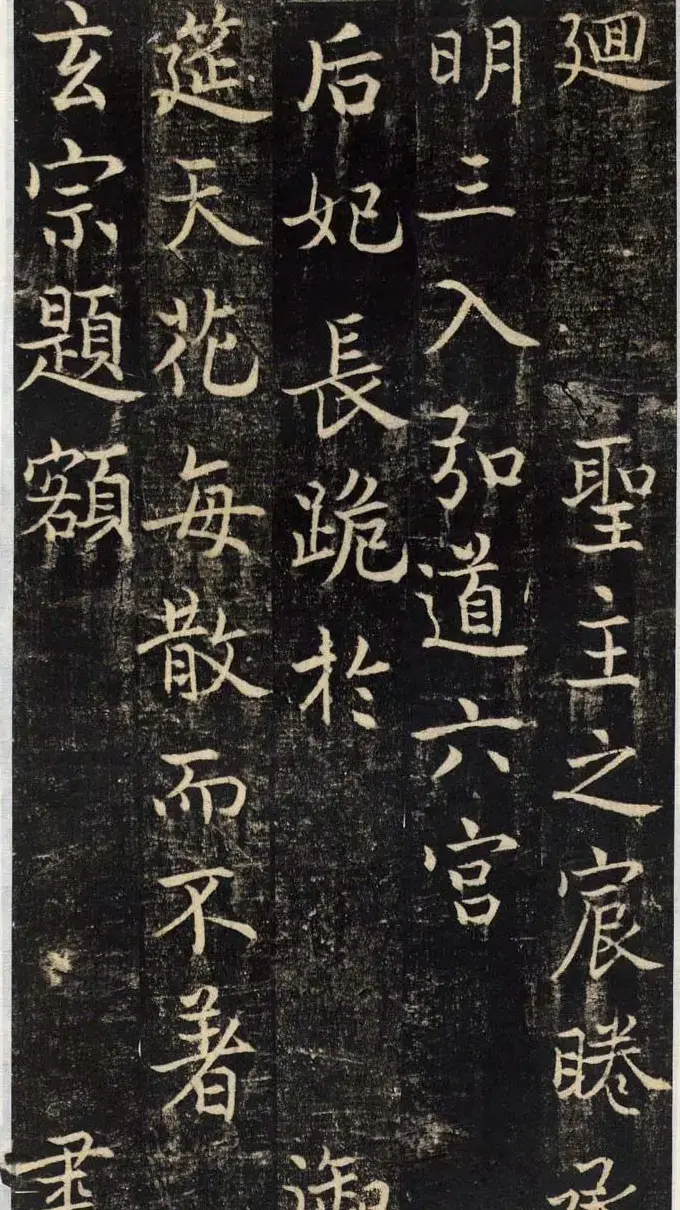 廻 聖主之宸睠承
明三入弘道六宮
后妃長跪於 御
筵天花每散而不著
玄宗題額 肅